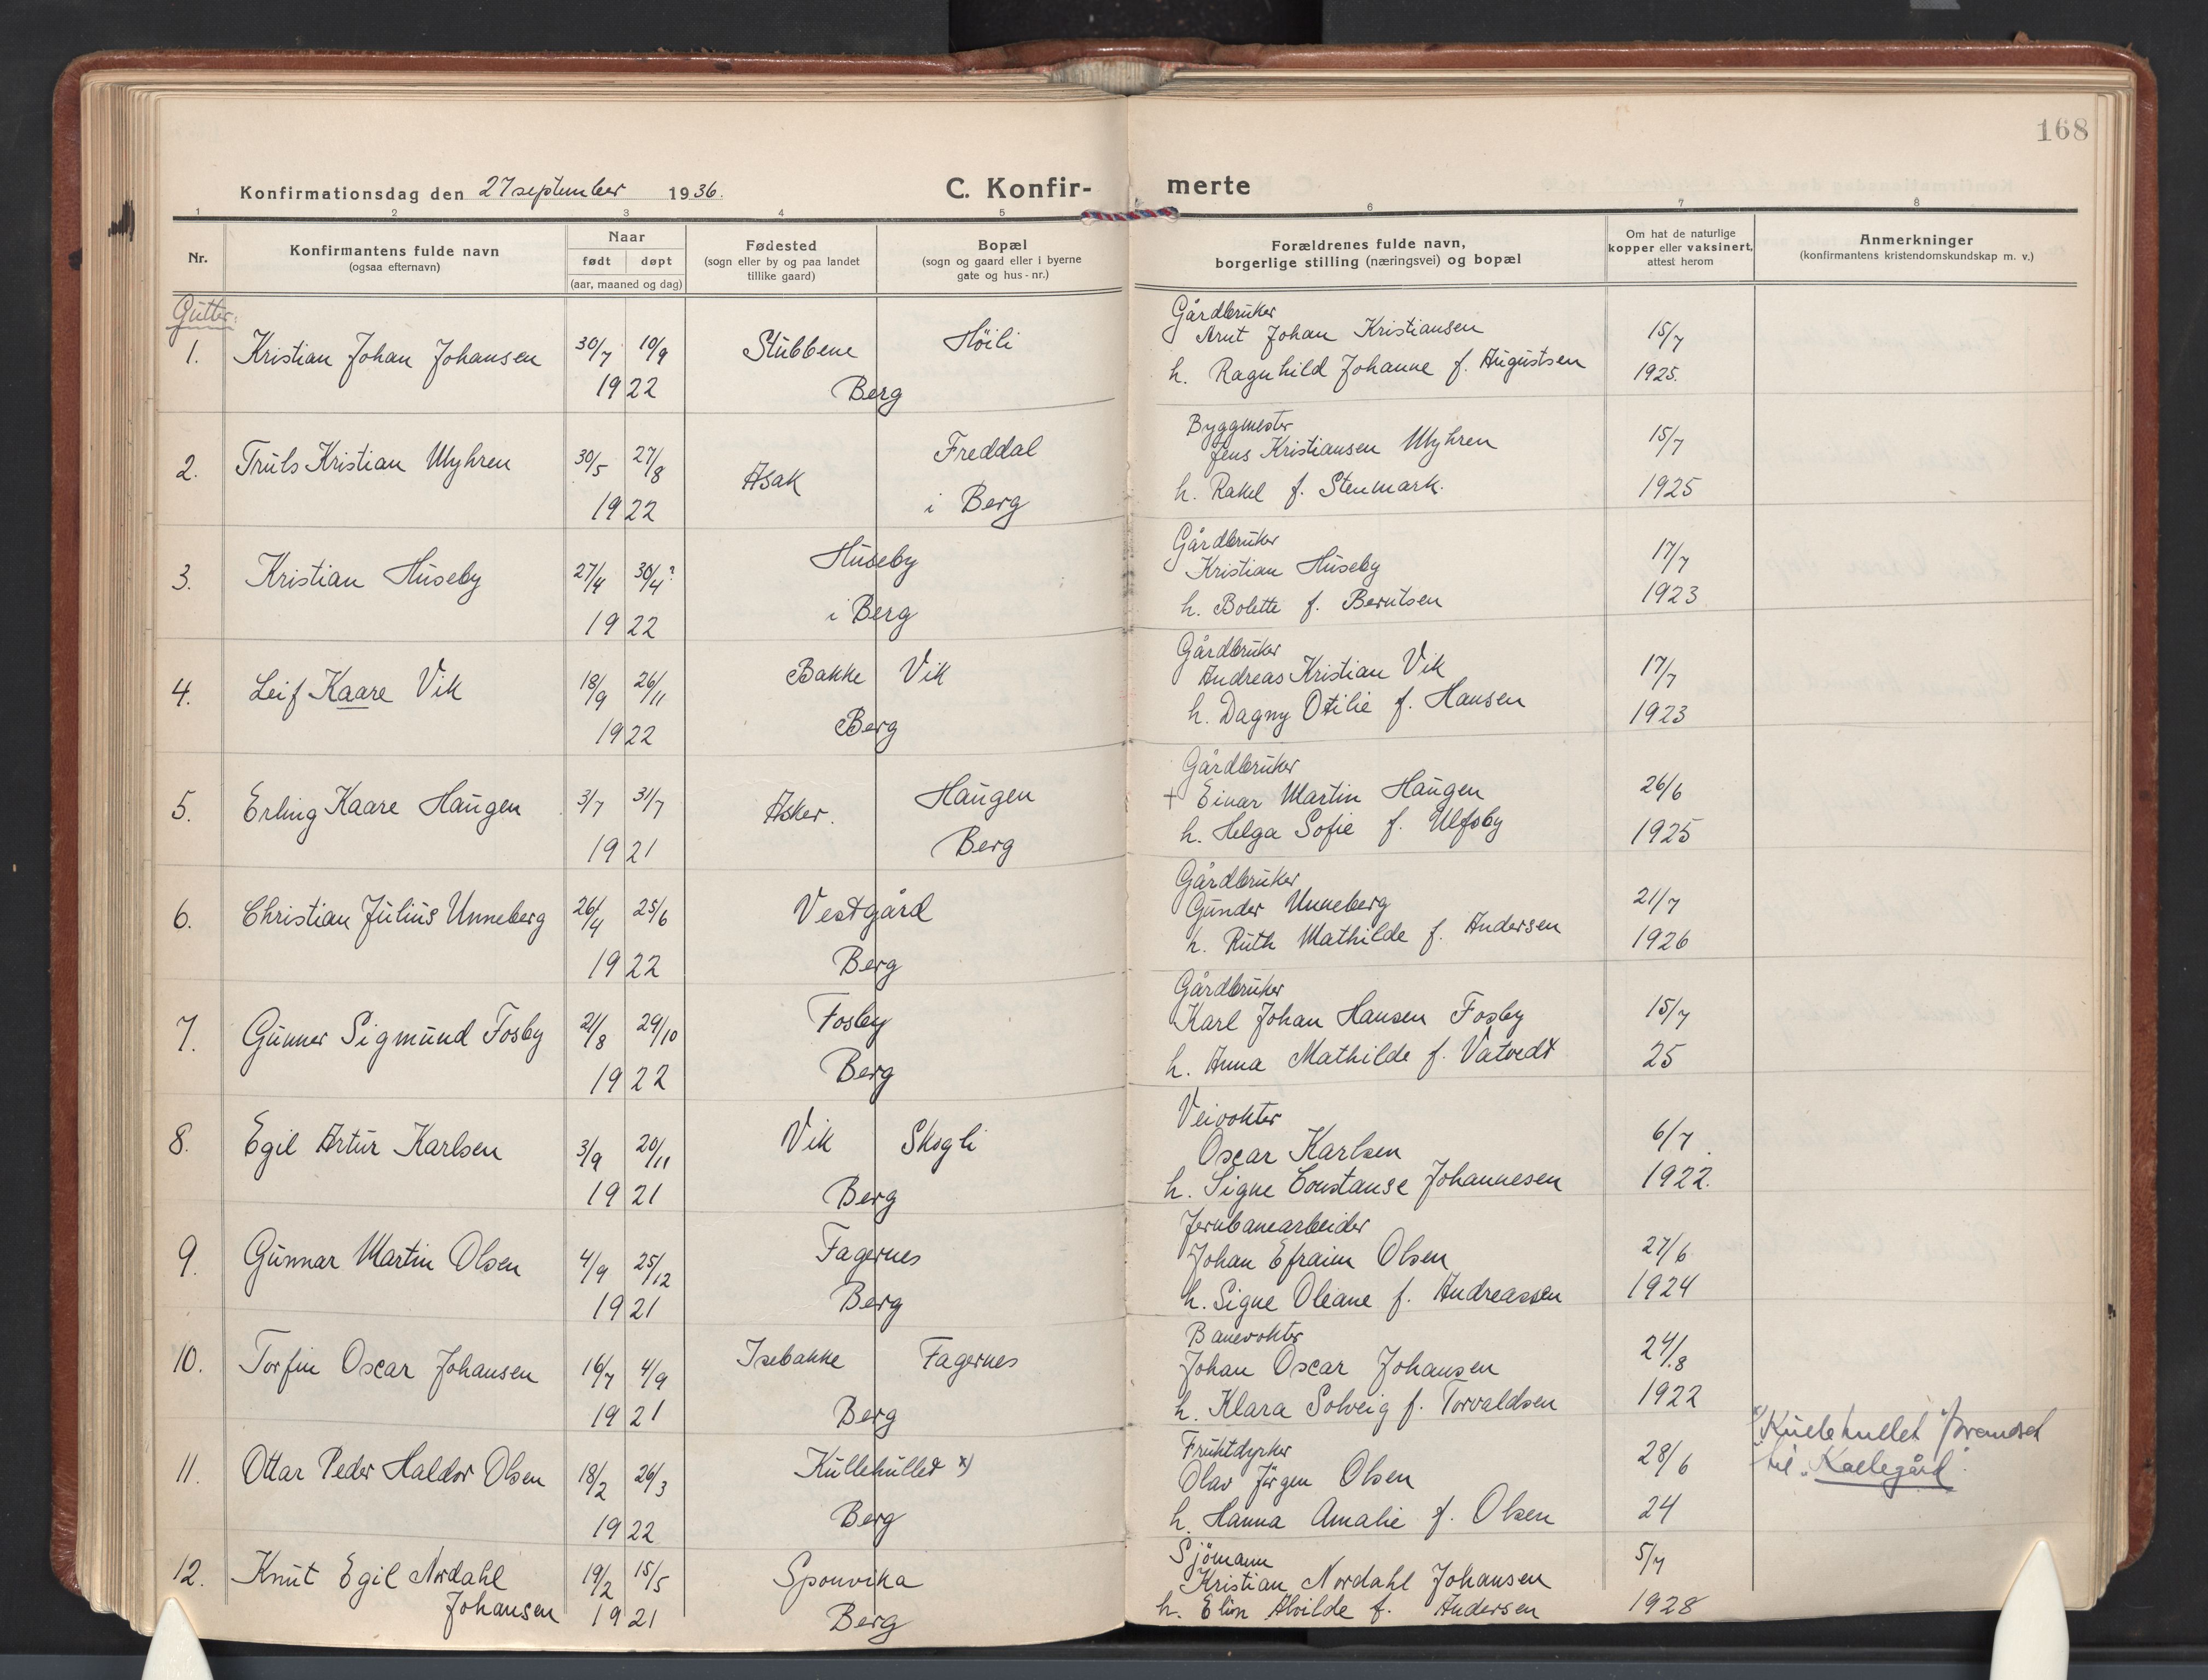 168
Konfirmationsdag den 27 september 1936.
C. Konfir-
merte
1 2 3 4 5 6 7 8
Nr.
Konfirmantens fulde navn
(ogsaa efternavn)
Naar
født døpt
(aar, maaned og dag)
Fødested
(sogn eller by og paa landet
tillike gaard)
Bopæl
(sogn og gaard eller i byerne
gate og hus-nr.)
Forældrenes fulde navn,
borgerlige stilling (næringsvei) og bopæl
Om hat de naturlige
kopper eller vaksinert,
attest herom
Anmerkninger
(konfirmantens kristendomskundskap m. v.)
Gutter:
Gårdbruker
1. Kristian Johan Johansen 30/7 10/9 Stubbene Höili Arnt Johan Kristiansen 15/7
1922 Berg h. Ragnhild Johanne f. Augustsen 1925.
Byggmester
2. Truls Kristian Myhren 30/5 27/8 Asak Freddal Jens Kristiansen Myhren 15/7
1922 i Berg h. Rakel f. Stenmark. 1925
Gårdbruker
3. Kristian Huseby 27/4 30/4? Huseby Kristian Huseby 17/7
1922 i Berg h. Bolette f. Berntsen 1923
Gårdbruker
4. Leif Kaare Vik 18/9 26/11 Bakke Vik Andreas Kristian Vik 17/7
1922 Berg h. Dagny Otilie f. Hansen 1923
Gårdbruker
5. Erling Kaare Haugen 3/7 31/7 Asker. Haugen + Einar Martin Haugen 26/6
1921 Berg h. Helga Sofie f. Ulfsby 1925
Gårdbruker
6. Christian Julius Unneberg 26/4 25/6 Vestgård Gunder Unneberg 21/7
1922 Berg h. Ruth Mathilde f. Andersen 1926
Gårdbruker
7. Gunner Sigmund Fosby 21/8 29/10 Fosby Karl Johan Hansen Fosby 15/7
1922 Berg h. Anna Mathilde f. Vatvedt 25
Veivokter
8. Egil Artur Karlsen 3/9 20/11 Vik Skogli Oscar Karlsen 6/7.
1921 Berg h. Signe Constanse Johannesen 1922.
Jernbanearbeider
9. Gunnar Martin Olsen 4/9 25/12 Fagernes Johan Efraim Olsen 27/6
1921 Berg h. Signe Oleane f. Andreassen 1924
Banevokter
10. Torfin Oscar Johansen 16/7 4/9 Isebakke Fagernes Johan Oscar Johansen 24/8
1921 Berg h. Klara Solveig f. Torvaldsen 1922
Fruktdyrker
11. Ottar Peder Haldor Olsen 18/2 26/3 Kullehullet x) Olav Jörgen Olsen 28/6
1922 Berg h. Hanna Amalie f. Olsen 24
x) "Kullehullet" forandret
til "Kallegård".
Sjömann
12. Knut Egil Nordahl 19/2 15/5 Sponvika Kristian Nordahl Johansen 5/7
Johansen 1921 Berg h. Elin Alvilde f. Andersen 1928